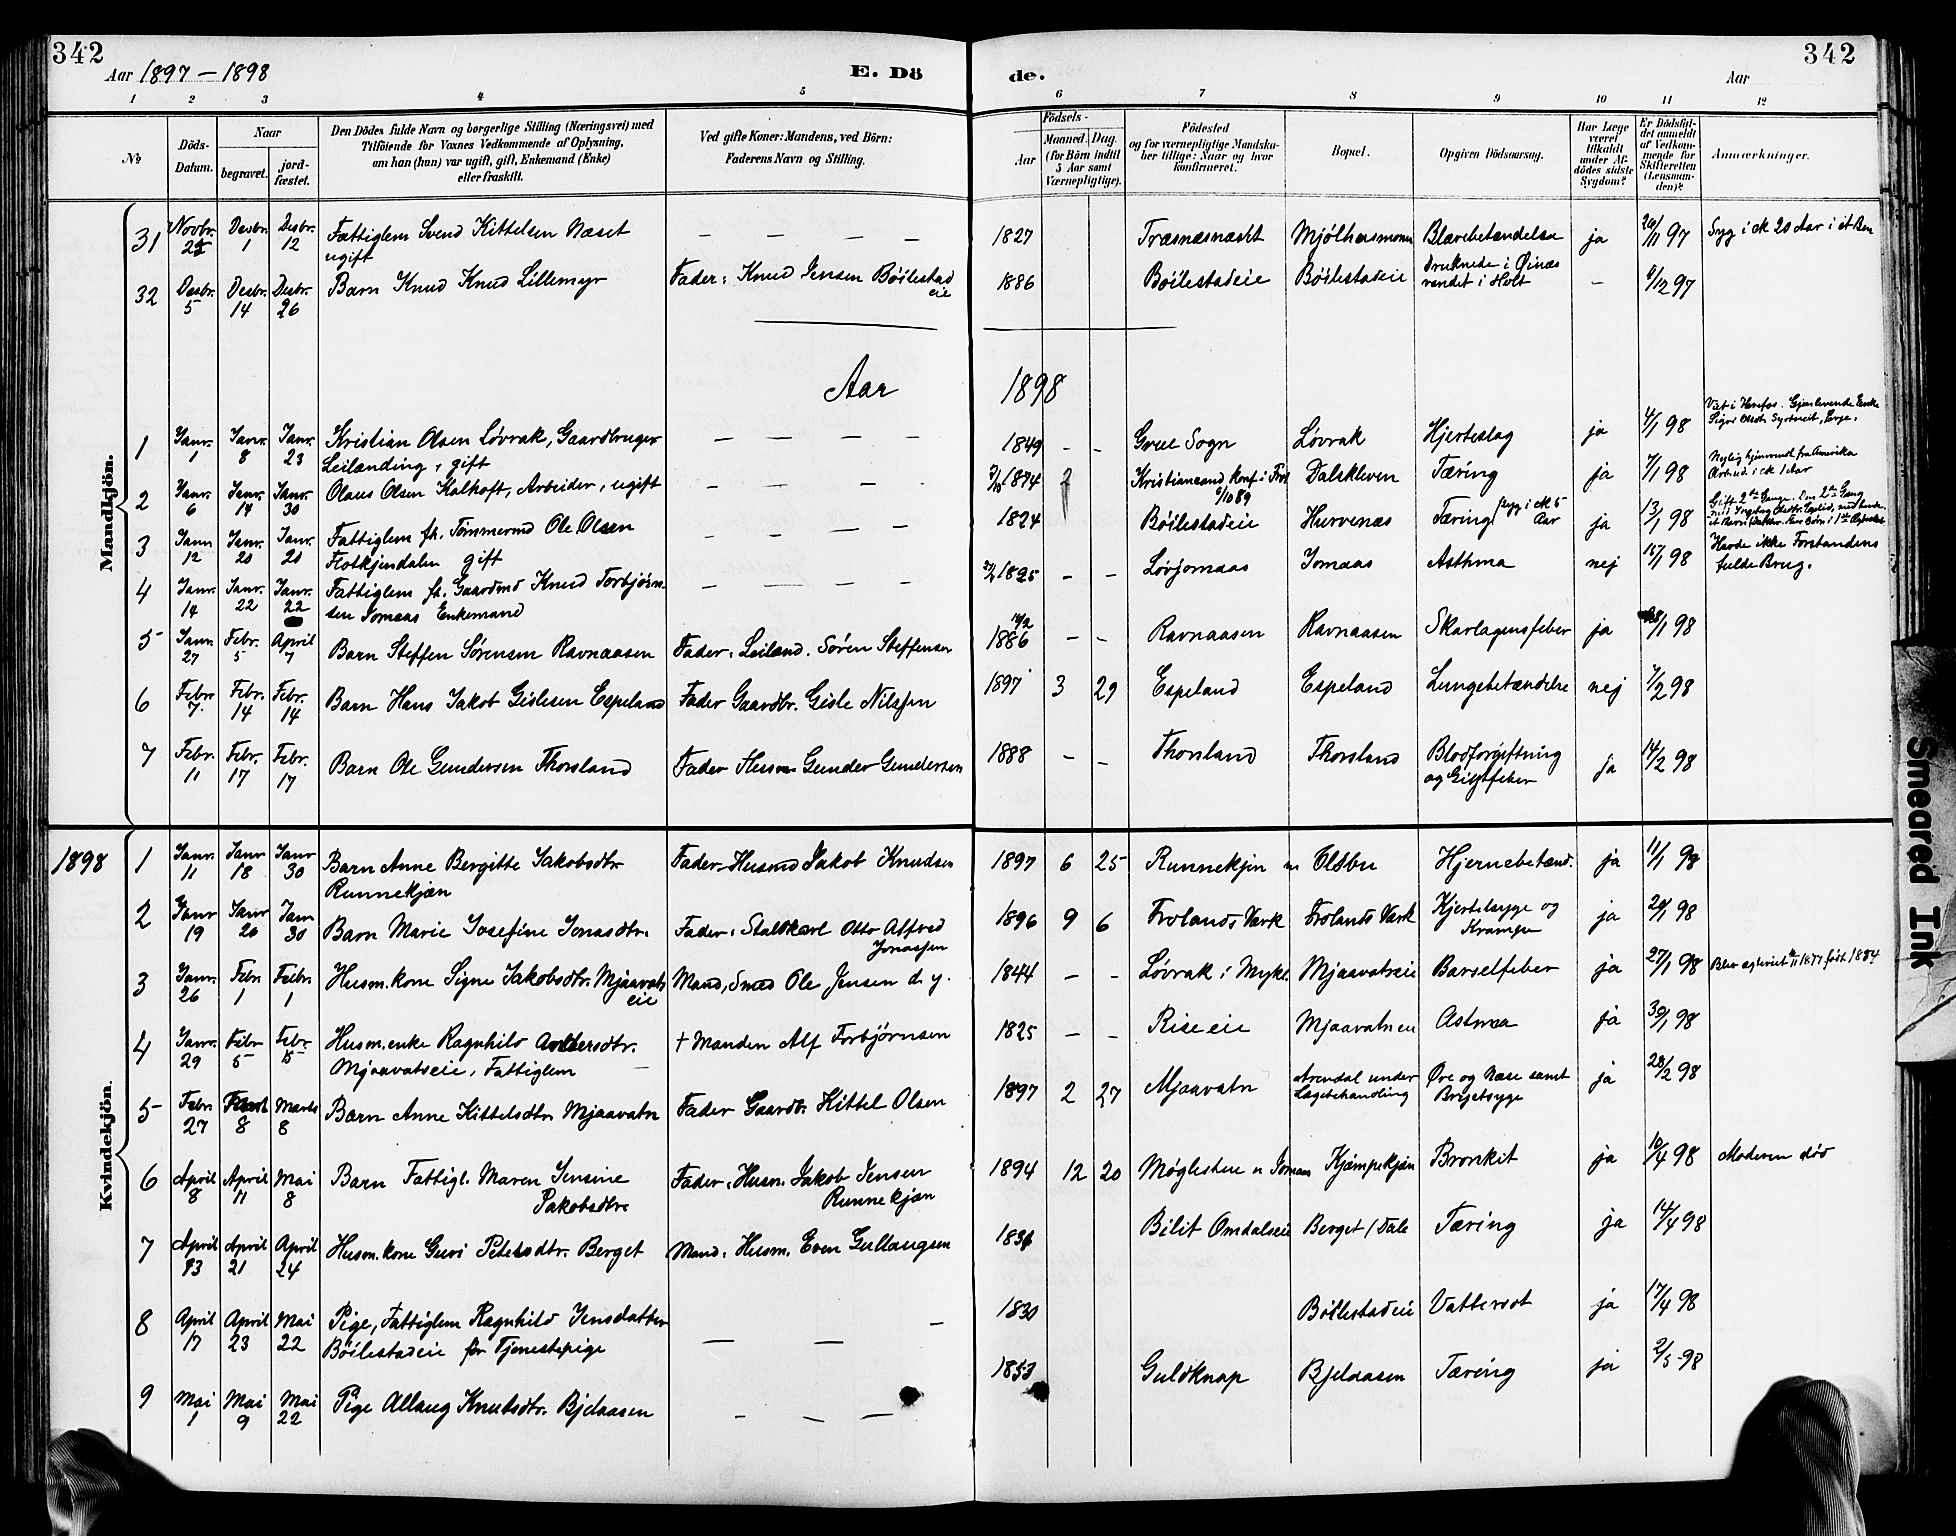 342
Aar 1897 – 1898
E. Dö
de.
Aar
342
1 2 3 4 5 6 7 8 9 10 11 12
No
Döds-
Datum.
Naar
begravet.
jord-
fæstet.
Den Dödes fulde Navn og borgerlige Stilling (Næringsvei) med
Tilföiende for Voxnes Vedkommende af Oplysning,
om han (hun) var ugift, gift, Enkemand (Enke)
eller fraskilt.
Ved gifte Koner: Mandens, ved Börn:
Faderens Navn og Stilling.
Födsels-
Aar
Maaned. Dag.
(for Börn indtil
5 Aar samt
Værnepligtige).
Födested
og for værnepligtige Mandska-
ber tillige: Naar og hvor
konfirmeret.
Bopæl.
Opgiven Dödsaarsag.
Har Læge
været
tilkaldt
under Af-
dödes sidste
Sygdom?
Er Dödsfal-
det anmeldt
af Vedkom-
mende for
Skifteretten
(Lensman-
den)?
Anmærkninger.
Mandkjön.
31 Novbr. Desbr. 1 Desbr. 12 Fattiglem Svend Kittelsen Næset
ugift
— — — — 1827 Blærebetændelse ja 97 Syg i ck 20 Aar i et Ben
32 Desbr. 5 Desbr. 14 Desbr. 26 Barn Knud Knud Lillemyr Fader: Knud Jensen Böilestad
eie
1886 Böilestadeie Böilestadeie Druknede i Øinæs
vandet i Holt
— 6/12 97
Aar 1898
1 Janr. 1 Janr. 8 Janr. 23 Kristian Olsen Løvrak, Gaardbruger
Leilænding, gift
— — — — 1849 - - Sogn Løvrak Hjerteslag ja 4/1 98
2 Janr. 6 Janr. 14 Janr. 30 Olaus Olsen Kalhoft, Arbeider, ugift
1874 2 Kristiansand konf. i Frol Dalskleven Tæring ja 7/1 98 Nylig hjemvendt fra Amerika
3 Janr. 12 Janr. 20 Janr. 20 Fattiglem fh. Tømmermd Ole Olsen
Flotkjendalen gift
1824 Böilestadeie Hurvenæs Tæring (syg i ck 5
Aar
ja 13/1 98
4 Janr. 14 Janr. 22 Janr. 22 Fattiglem fh. Gaardmd Knud Torbjörn-
sen Jomaas Enkemand
1825 - - Løvjomaas Jomaas Asthma nej 15/1 98 Havde ikke Forstandens
fulde Brug.
5 Janr. 27 Febr. 5 April 7 Barn Steffen Sørensen Ravnaasen Fader: Leilænd. Søren Steffensen
1886 - - Ravnaasen Ravnaasen Skarlagensfeber ja 98
6 Febr. 7. Febr. 14 Febr. 14 Barn Hans Jakob Gislesen Espeland Fader Gaardbr. Gisle Nilssen
1897 3 29 Espeland Espeland Lungebetændelse nej 7/2 98
7 Febr. 11 Febr. 17 Febr. 17 Barn Ole Gundersen Thorsland Fader Husm Gunder Gundersen
1888 - - Thorsland Thorsland Blodforgiftning
og Gigtfeber
ja 14/2 98
Kvindekjön.
1898
1 Janr. 11 Janr 18 Janr 30 Barn Anne Bergitte Jakobsdtr.
Runnekjæn
Fader Husmd Jakob Knudsen 1897 6 25 Runnekjen Olsbu Hjernebetænd. ja 11/1 98
2 Janr 19 Janr 26 Janr 30 Barn Marie Josefine Jonasdtr. Fader: Staldkarl Otto Alfred
Jonassen
1896 9 6 Frolands Værk Frolands Værk Hjertesyge og
Krampe
ja 20/1 98
3 Janr. 26 Febr 1 Febr. 1 Husm.kone Signe Jakobsdtr. Mjaavats
eie
Mand, Smed Ole Jensen d. y. 1844 - - Løvrak i Mykl. Mjaavatseie Barselfeber ja 27/1 98
4 Janr. 29 Febr 5 Febr Husm.enke Ragnhild
Mjaavatseie, Fattiglem
† Manden Alf Torbjörnsen 1825 - - Riseeie Astma ja 30/1 98
5 Febr 27 8 Marts 8 Barn Anne Kittelsdtr Mjaavatn Fader Gaardb. Kittel Olsen
1897 2 27 Mjaavatn Arendal under
Lægebehandling
Øre og Næse samt
Brystsyge
ja 28/2 98
6 April 8 April 11 Mai 8 Barn Fattigl. Maren Jensine
Jakobsdtr
Fader: Husm. Jakob Jensen
Runnekjæn
1894 12 20 Kjæmpekjæn Bronkit ja 10/4 98 Moderen død
7 April 13 April 21 April 24 Husm.kone Guri Petersdtr. Berget Mand: Husm. Even Gullaugsen
Omdalseie Berget / Dale Tæring ja 14/4 98
8 April 17 April 23 Mai 22 Pige, Fattiglem Ragnhild Jensdatter
Böilestadeie för Tjenestepige
— — — 1830 Böilestadeie Vattersot ja 17/4 98
9 Mai 1 Mai 9 Mai 22 Pige Allaug Knutsdtr. Bjelaasen
— — — 1853 Guldknap Bjelaasen Tæring ja 2/5 98
Smeared Ink